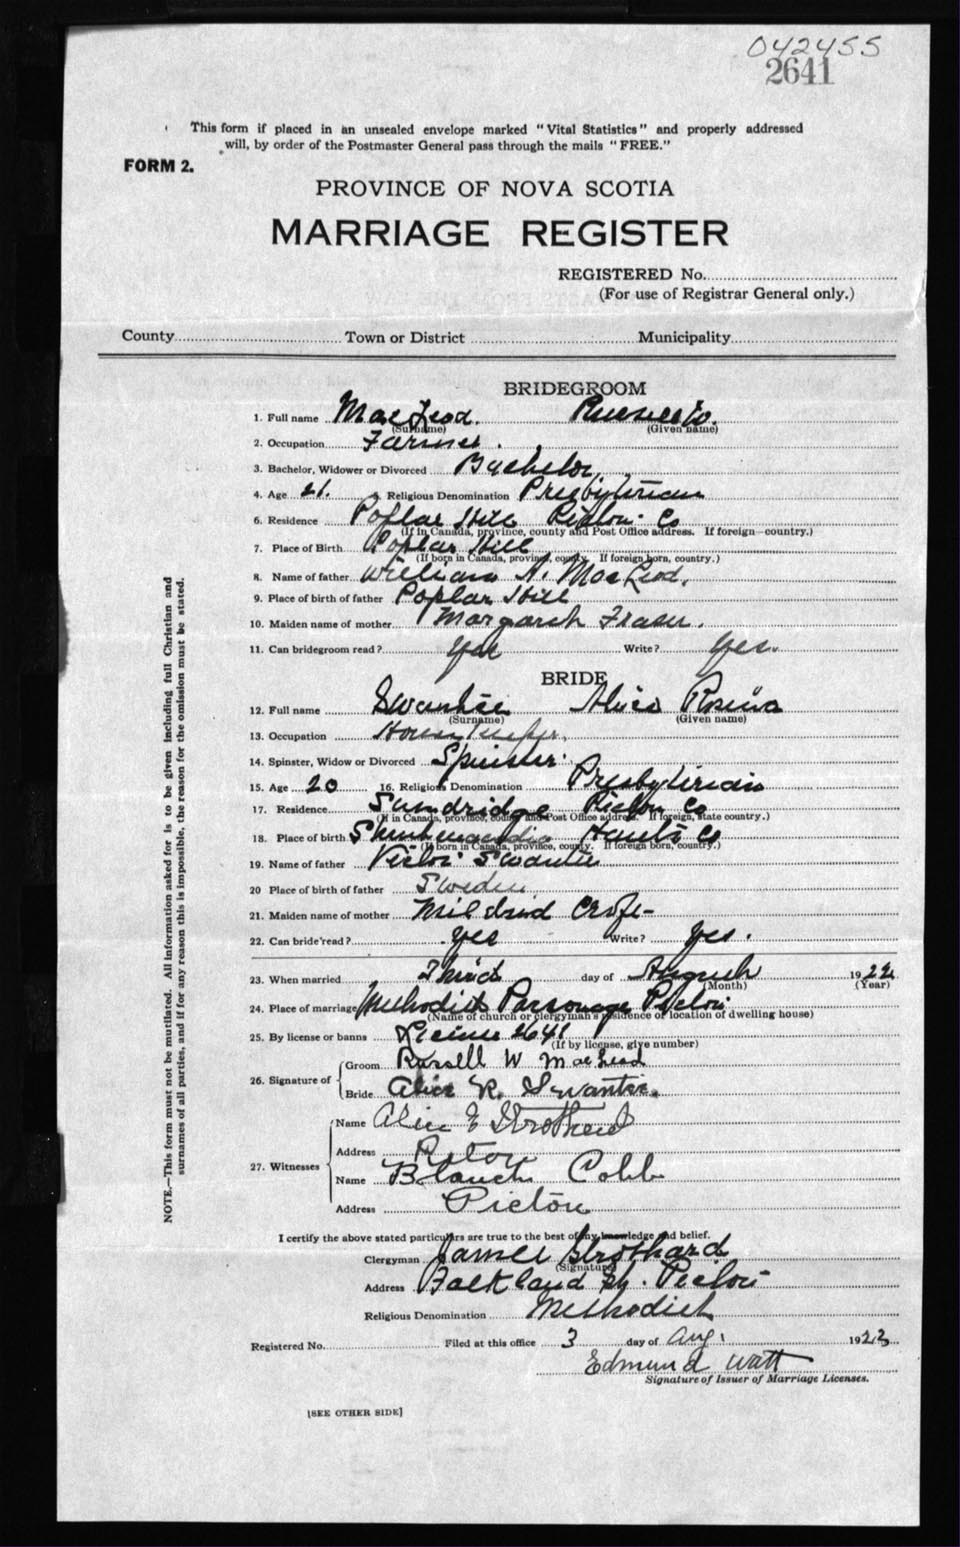 042455
2641
This form if placed in an unsealed envelope marked "Vital Statistics" and properly addressed
will, by order of the Postmaster General pass through the mails "FREE."
FORM 2.
PROVINCE OF NOVA SCOTIA
MARRIAGE REGISTER
REGISTERED No.
(For use of Registrar General only.)
County Town or District Municipality
BRIDEGROOM
1. Full name MacLeod. Russell W.
(Surname) (Given name)
2. Occupation Farmer.
3. Bachelor, Widower or Divorced Bachelor
4. Age 21. 5. Religious Denomination Presbyterian
6. Residence Poplar Hill Pictou Co
(If in Canada, province, county and Post Office address. If foreign—country.)
7. Place of Birth Poplar Hill
(If born in Canada, province, county. If foreign born, country.)
8. Name of father William A. MacLeod.
9. Place of birth of father Poplar Hill
10. Maiden name of mother Margaret Fraser.
11. Can bridegroom read? Yes Write? Yes.
BRIDE
12. Full name Swantee Alice Rosina
(Surname) (Given name)
13. Occupation Housekeeper.
14. Spinster, Widow or Divorced Spinster.
15. Age 20 16. Religious Denomination Presbyterian
17. Residence Sundridge Pictou Co
(If in Canada, province, county and Post Office address. If foreign, state country.)
18. Place of birth Shubenacadie Hants Co
(If born in Canada, province, county. If foreign born, country.)
19. Name of father Victor Swantee
20 Place of birth of father Sweden
21. Maiden name of mother Mildrid
22. Can bride read? Yes Write? Yes.
23. When married Third day of August 1922
(Month) (Year)
24. Place of marriage Methodist Parsonage Pictou
(Name of church or clergyman's residence or location of dwelling house)
25. By license or banns License 2641
(If by license, give number)
26. Signature of Groom Russell W MacLeod
Bride Alice R. Swantee.
27. Witnesses Name Alice E Strothard
Address Pictou
Name Blanch Cobb
Address Pictou
I certify the above stated particulars are true to the best of my knowledge and belief.
Clergyman James Strothard
(Signature)
Address Falkland St. Pictou
Religious Denomination Methodist
Registered No. Filed at this office 3 day of Aug. 1922
Edmund Watt
Signature of Issuer of Marriage Licenses.
[SEE OTHER SIDE]
NOTE.—This form must not be mutilated. All information asked for is to be given including full Christian and
surnames of all parties, and if for any reason this is impossible, the reason for the omission must be stated.